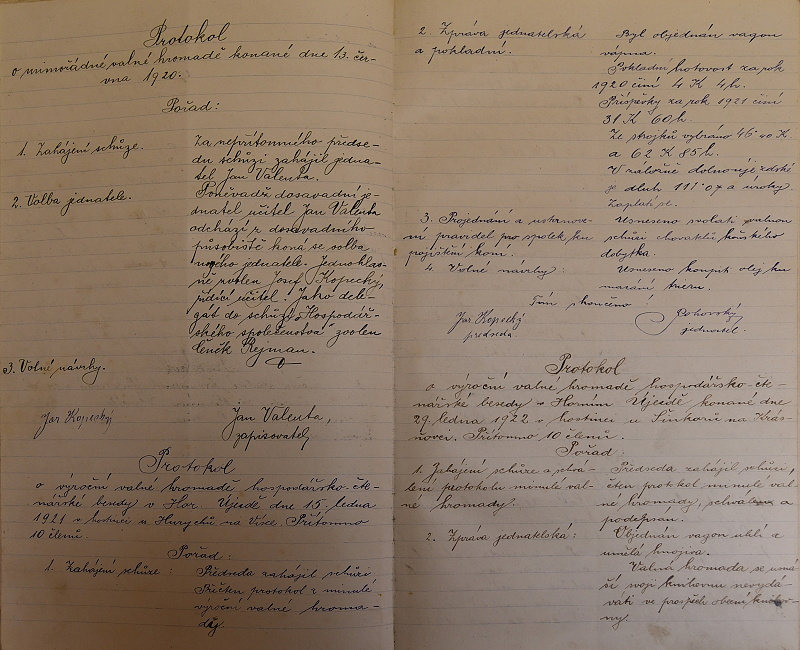 Protokol
o mimořádné valné hromadě konané dne 13. čer-
vna 1920.
Pořad:
1. Zahájení schůze.
Za nepřítomného předse-
du schůzi zahájil jedna-
tel Jan Valenta.
2. Volba jednatele.
Poněvadž dosavadní je-
dnatel učitel Jan Valenta
odchází z dosavadního
působiště koná se volba
nového jednatele. Jednohlas-
ně zvolen Josef Kopecký,
řídící učitel. Jako dele-
gát do schůzí „Hospodář-
ského společenstva" zvolen
Čeněk Rejman.
3. Volné návrhy.
Jos Kopecký
Jan Valenta,
zapisovatel
Protokol
o výroční valné hromadě hospodářsko-čte-
nářské besedy v Hor. Újezdě dne 15. ledna
1921 v hostinci u Hurychů na Vísce. Přítomno
10 členů.
Pořad:
1. Zahájení schůze:
Předseda zahájil schůzi.
Přečten protokol z minulé
výroční valné hroma-
dy.
2. Zpráva jednatelská
a pokladní.
Byl objednán vagon
vápna.
Pokladní hotovost za rok
1920 činí 4 K 4h.
Příspěvky za rok 1921 činí
31 K 60h.
Ze strojků vybráno 46·40 K
a 62 K 85h.
V záložně dolno-újezdské
je dluh 111·07 a úroky.
Zaplatí se.
3. Projednání a ustanove-
ní pravidel pro spolek ku
pojištění koní.
Usneseno svolati valnou
schůzi chovatelů koňského
dobytka.
4. Volné návrhy:
Usneseno koupit olej ku
mazání trieru.
Tím skončeno!
Jos Kopecký
předseda
jednatel.
Protokol
o výroční valné hromadě hospodářsko-čte-
nářské besedy v Horním Újezdě konané dne
29. ledna 1922 v hostinci u Šinkorů na Krás-
ňovsi. Přítomno 10 členů.
Pořad:
1. Zahájení schůze a schvá-
lení protokolu minulé val-
né hromady.
Předseda zahájil schůzi,
čten protokol minulé val-
né hromady, schválen a
podepsán.
2. Zpráva jednatelská:
Objednán vagon uhlí a
umělá hnojiva.
Valná hromada se usná-
ší svoji knihovnu nevydá-
vati ve prospěch obecní knihov-
ny.